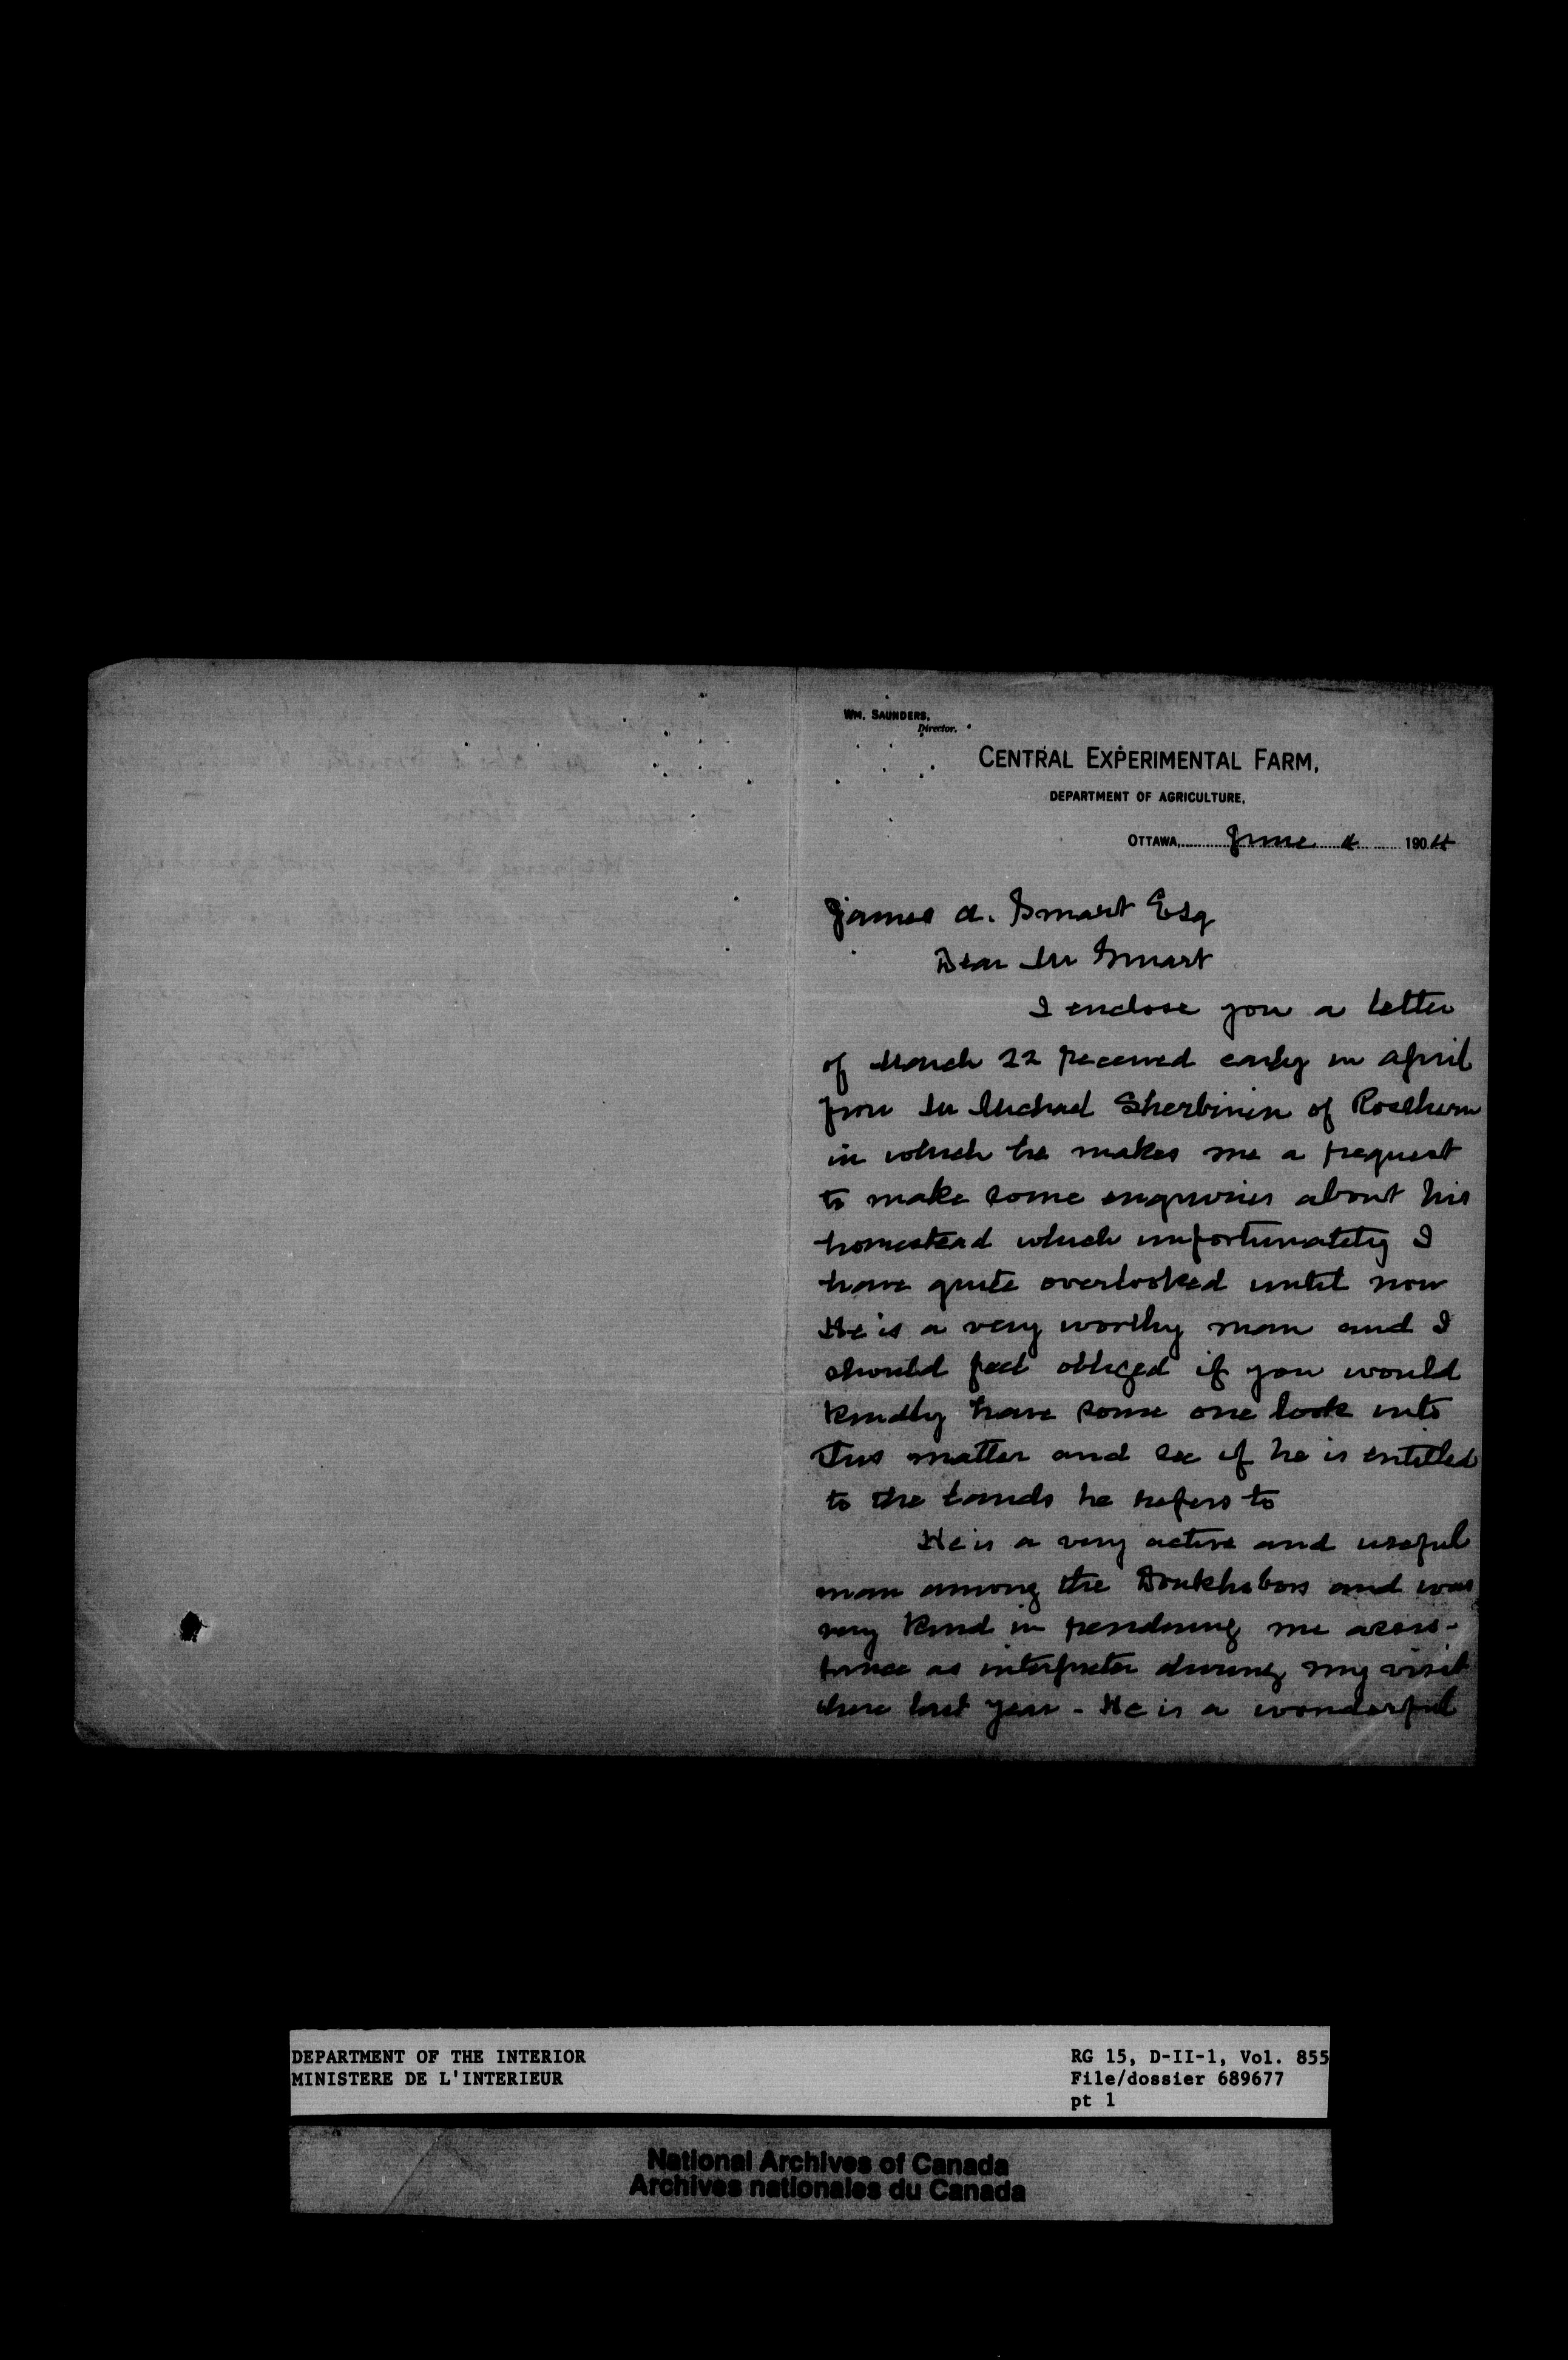 WM. SAUNDERS,
Director.
CENTRAL EXPERIMENTAL FARM,
DEPARTMENT OF AGRICULTURE,
OTTAWA, June 4 1904
James A. Smart Esq
Dear Mr Smart
I enclose you a letter
of March 22 received early in April
from Mr Michael Sherbinin of Rosthern
in which he makes me a request
to make some enquiries about his
homestead which unfortunately I
have quite overlooked until now
He is a very worthy man and I
should feel obliged if you would
kindly have some one look into
this matter and see if he is entitled
to the lands he refers to
He is a very active and useful
man among the Doukhobors and was
very kind in rendering me assis-
tance as interpreter during my visit
there last year - He is a wonderful
DEPARTMENT OF THE INTERIOR
MINISTERE DE L'INTERIEUR
RG 15, D-II-1, Vol. 855
File/dossier 689677
pt 1
National Archives of Canada
Archives nationales du Canada